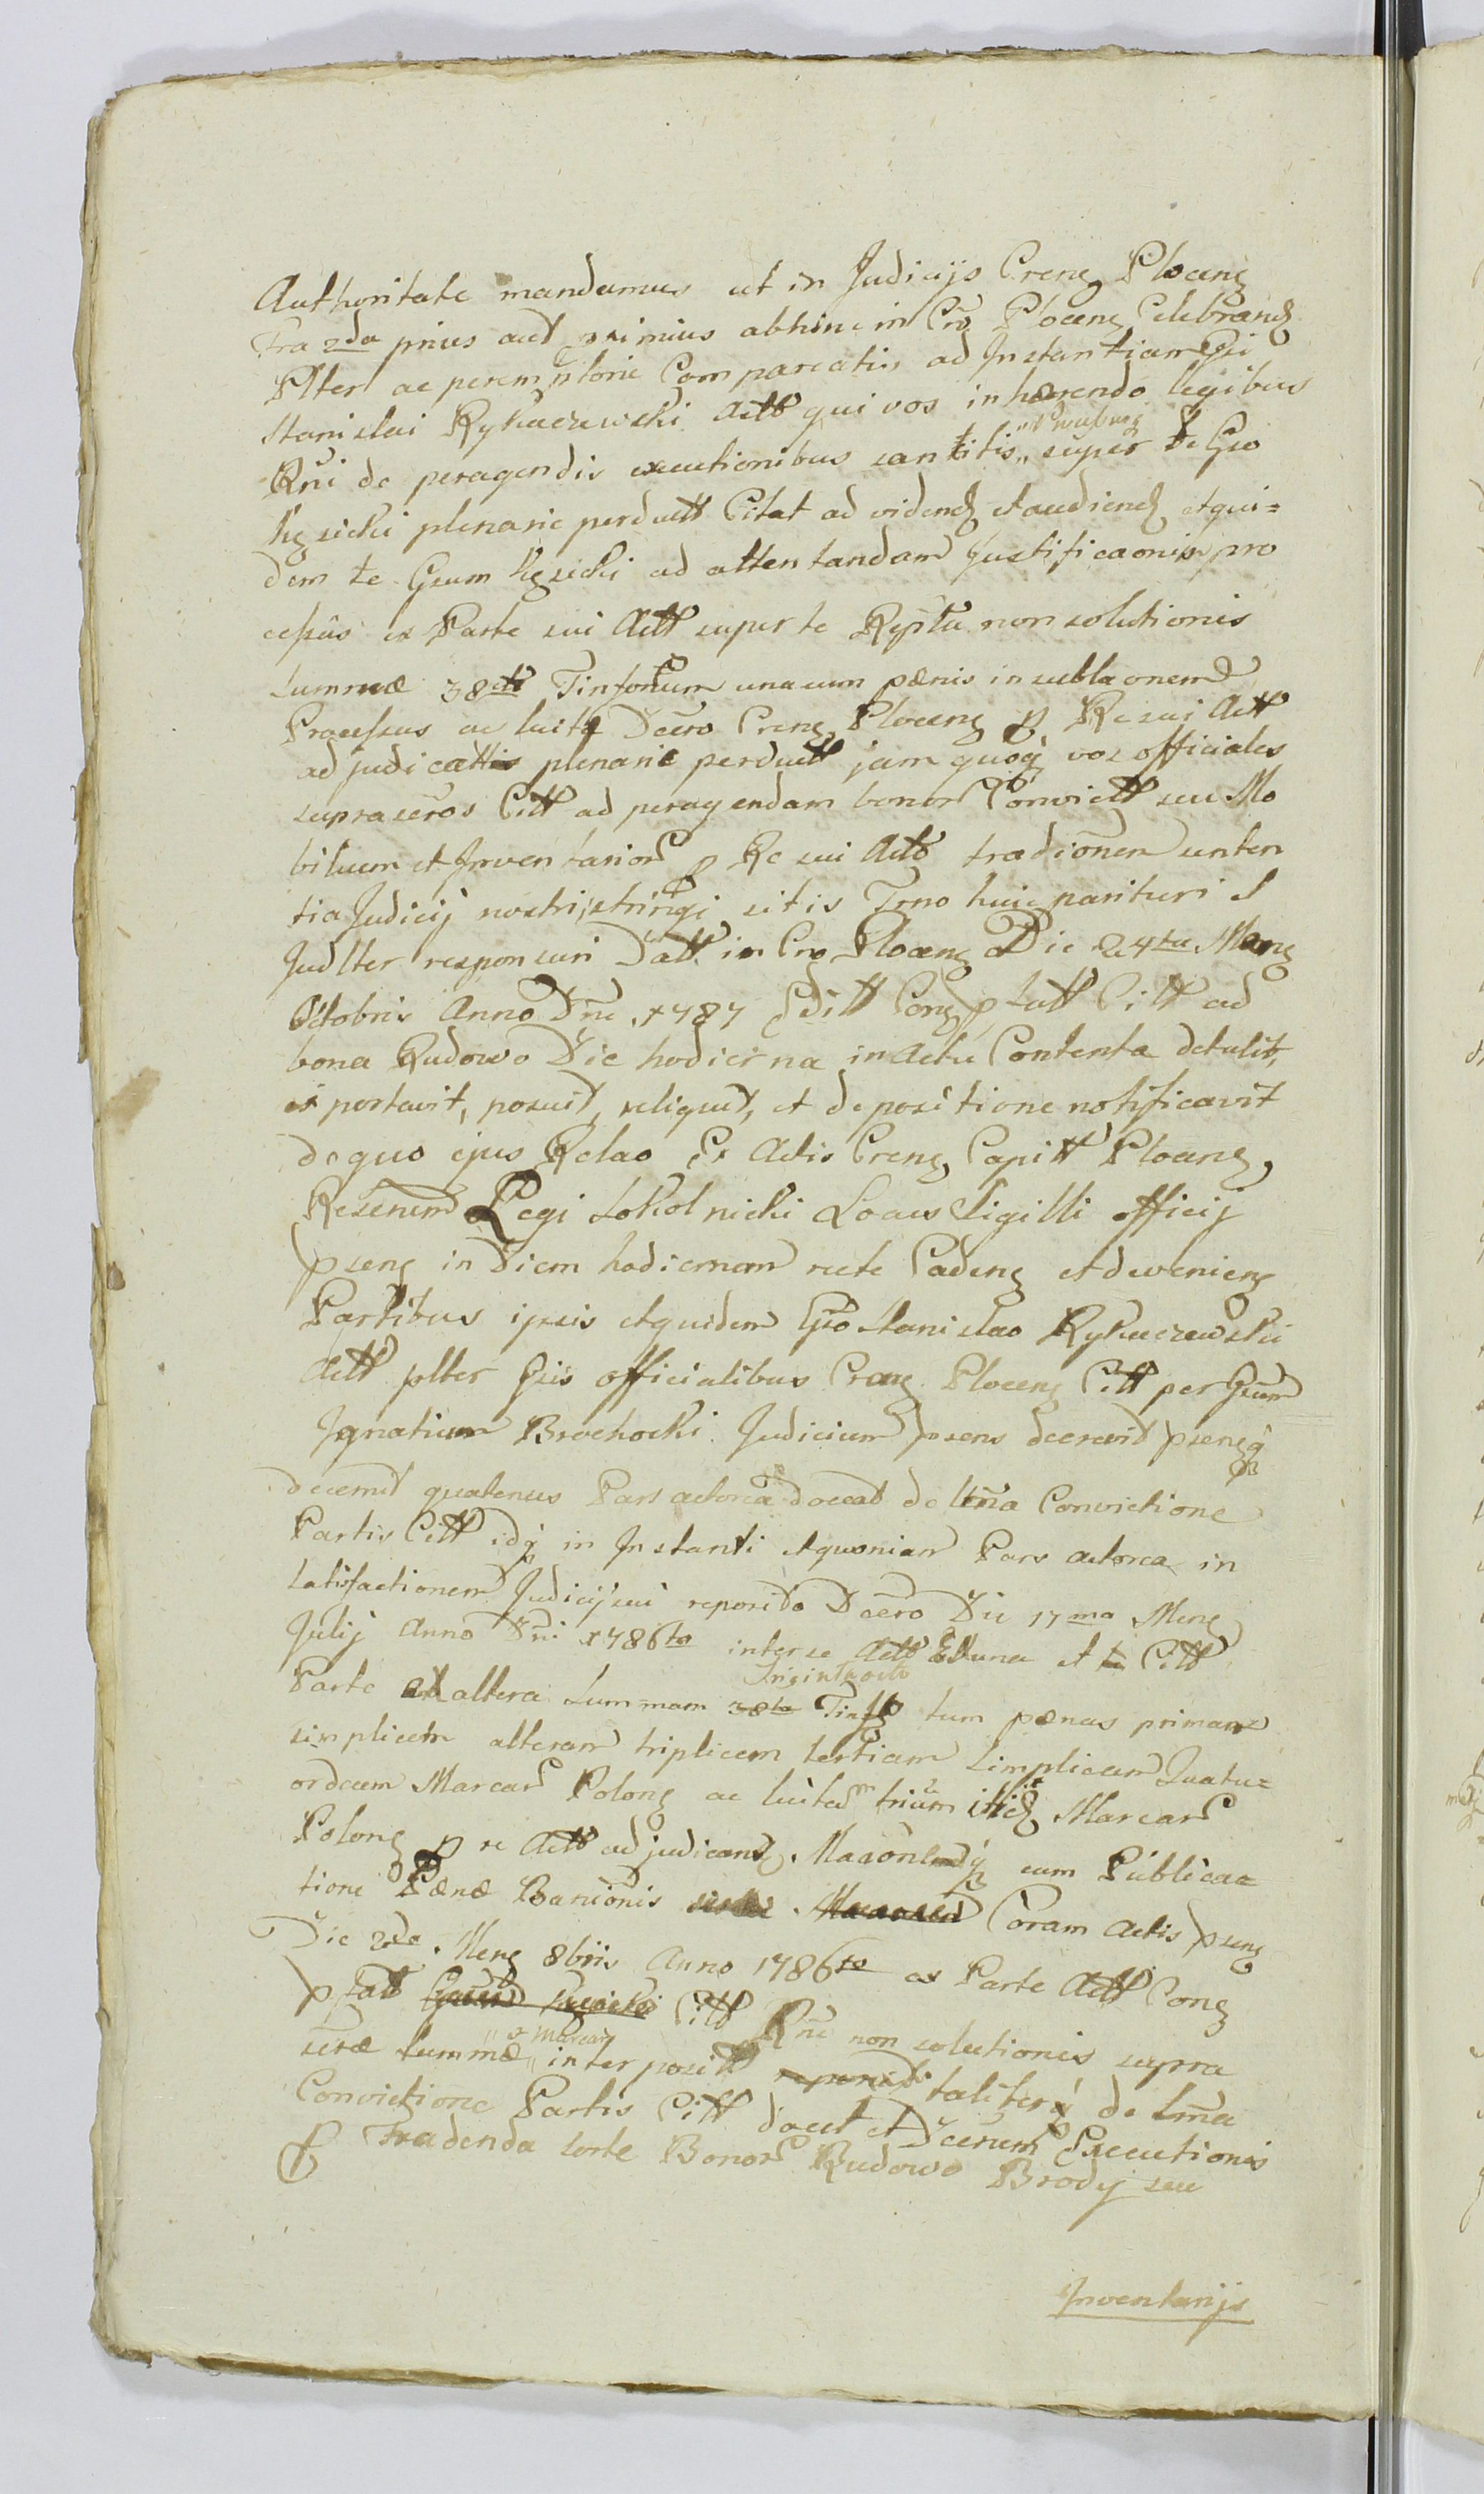 Authoritate mandamus ut in Judicijs Crens Plocens
Fra 2da prius aut proximius abhinc in Cro Plocens Celebrand
Plter ac peremptorie Compareatis ad Instantiam Gsi
Stanislai Rykaczewski Actt qui vos inhærendo legibus
Rni de peragendis executionibus sancitis,, super te Gso
Kęsicki plenarie perductt Citat ad vidend et audiend et qui=
dem te Gsum Kęsicki ad attentandam Justificaonis pro
cessus ex Parte sui Actt super te Rptu non solutionis
Summæ 38cti Tinforum una cum pænis in sublaonem
Processus ac luita Dcero Crens Plocens p Re sui Actt
adjudicattis plenarie perductt jam quoq vos officiales
suprascros Citt ad peragendam bonor Convictt seu Mo
bilium et Inventarior p Re sui Actt tradionem senten
tia Judicij nostri stringi sitis Trno huic parituri &
Judlter responsuri Datt in Cro Plocens Die 24ta Mens
Octobris Anno Dni 1787 Editt Cong ptatt Citt ad
bona Rudowo Die hodierna in Actu Contenta detulit,
exportavit, posuit, reliquit, et de positione notificavit
de quo ejus Relao Ex Actis Crens Capitt Plocens,
Rescnem Legi Sokolnicki Locus Sigilli officij
psens in Diem hodiernam recte Cadens et deveniens
Partibus ipsis et quidem Gso Stanislao Rykaczewski
Actt plter Gsis officialibus Crens Plocens Citt per Gsum
Ignatium Brochocki Judicium psens decrevit psensq
decernit quatenus Pars actorea doceat de ltma Convictione
Partis Citt idq in Instanti et quoniam Pars actorea in
satisfactionem Judicij sui reposito Dcero Die 17ma Mens
Julij Anno Dni 1786to inter se Actt Ex una et Citt
Parte ex altera Summam Triginta octo Tinff tum pænas primam
simplicem alteram triplicem tertiam simplicem Quatu=
ordecem Marcar Polons ac luitam trium itid Marcar
Polons p re Actt adjudicand. cum Publica=
tione Pænæ Banionis Coram Actis psens
Die 2da Mens 8bris Anno 1786to ex Parte Actt Cons
ptatt Citt Rne non solutionis supra
scræ Summæ,, et Marcar,, interpositt taliterq de ltma
Convictione Partis Citt docet et Dcerum Executionis
E Tradenda sorte Bonor Rudowo Brody seu
Inventarijs